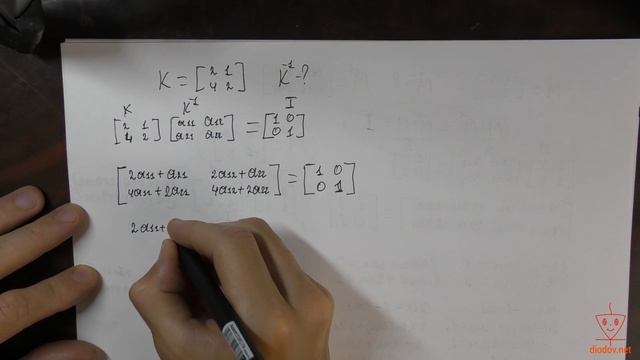 K = [2 1
4 2] K⁻¹ - ?
K K⁻¹ I
[2 1
4 2] [a₁₁ a₁₂
a₂₁ a₂₂] = [1 0
0 1]
[2a₁₁ + a₂₁ 2a₁₂ + a₂₂
4a₁₁ + 2a₂₁ 4a₁₂ + 2a₂₂] = [1 0
0 1]
2a₁₁+
diodov.net